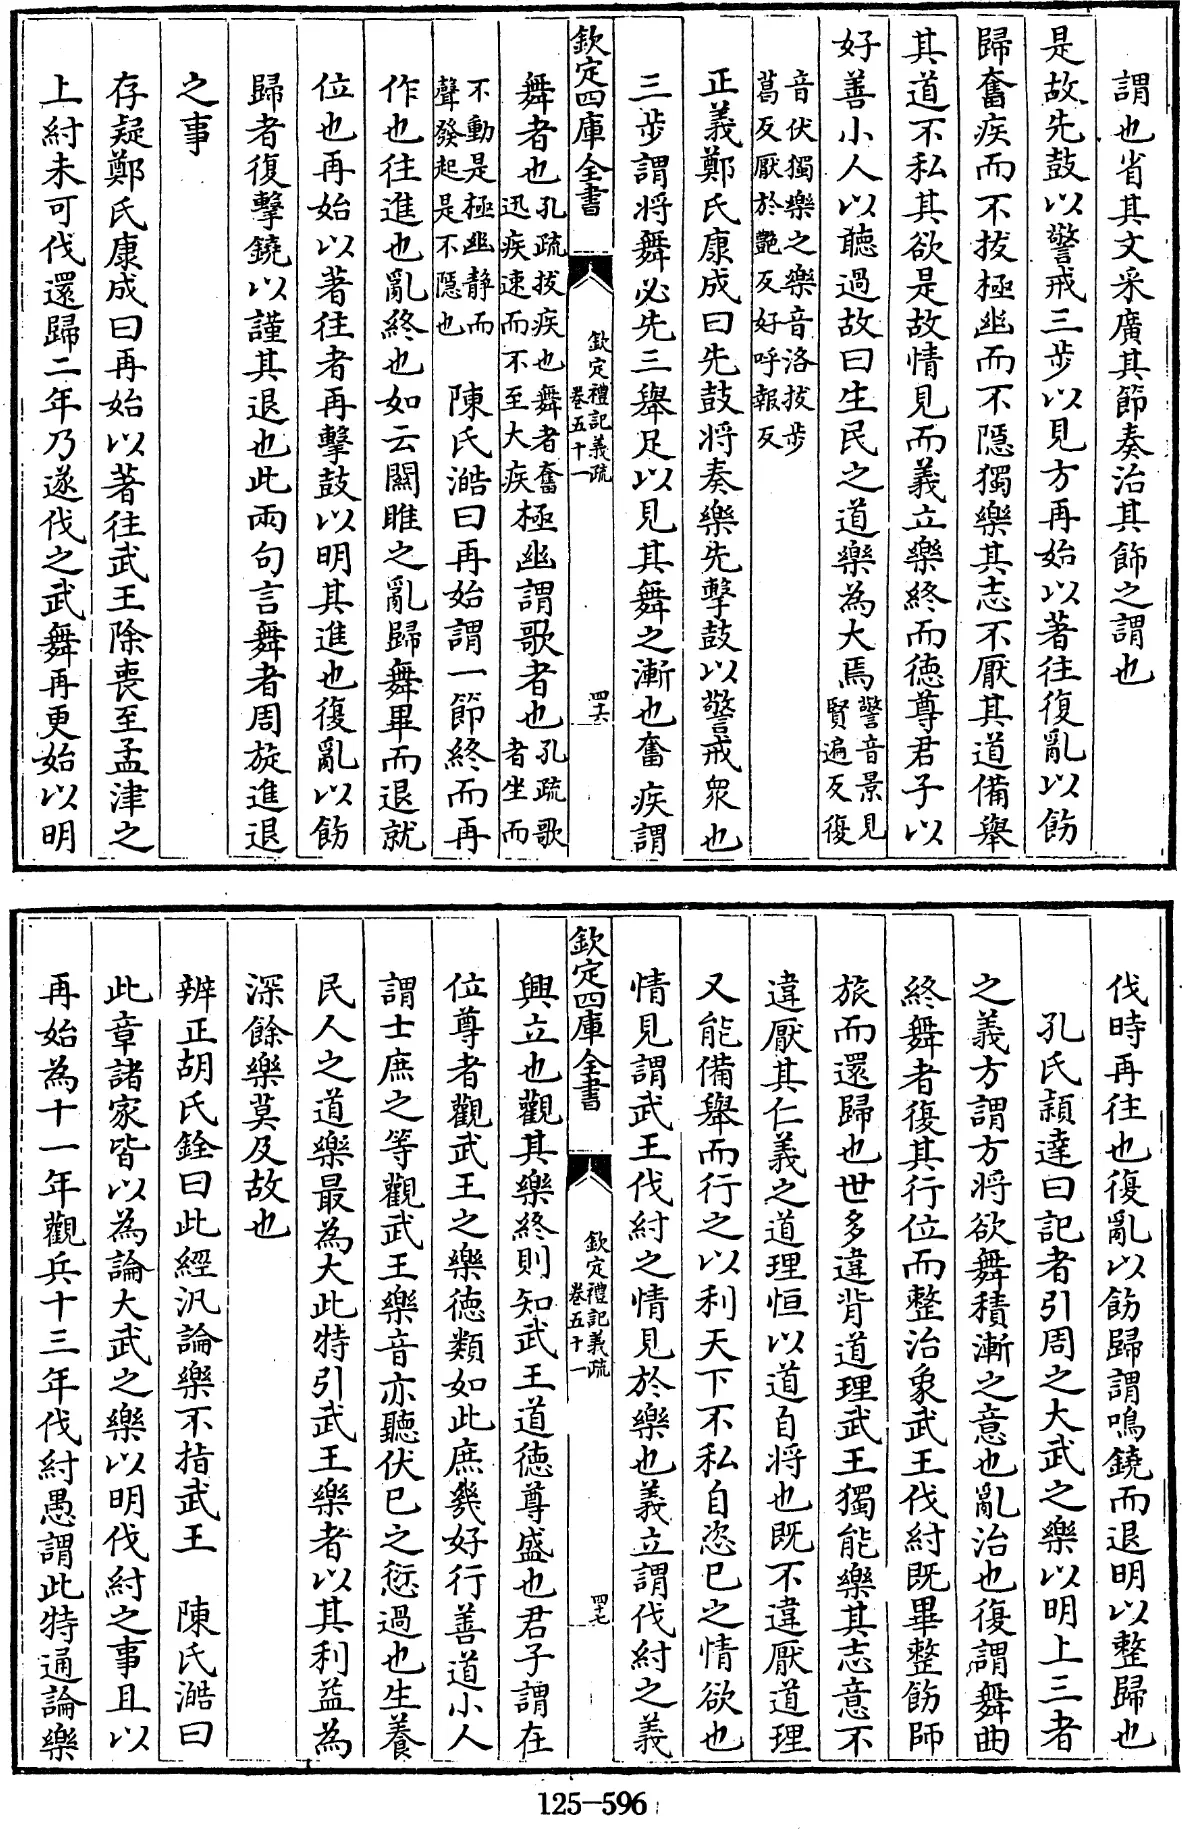 謂也省其文采廣其節奏治其飾之謂也
是故先鼓以警戒三步以見方再始以著往復亂以飭
歸奮疾而不拔極幽而不隱獨樂其志不厭其道備舉
其道不私其欲是故情見而義立樂終而德尊君子以
好善小人以聽過故曰生民之道樂為大焉警音景見賢遍反復
音伏獨樂之樂音洛拔步葛反厭於艷反好呼報反
正義鄭氏康成曰先鼓將奏樂先擊鼓以警戒衆也
三步謂將舞必先三舉足以見其舞之漸也奮疾謂
欽定四庫全書 欽定禮記義疏卷五十一 四十六
舞者也孔疏拔疾也舞者奮迅疾速而不至大疾極幽謂歌者也孔疏歌者坐而
不動是極幽静而聲發起是不隱也 陳氏澔曰再始謂一節終而再
作也往進也亂終也如云關雎之亂歸舞畢而退就
位也再始以著往者再擊鼓以明其進也復亂以飭
歸者復擊鐃以謹其退也此兩句言舞者周旋進退
之事
存疑鄭氏康成曰再始以著往武王除喪至孟津之
上紂未可伐還歸二年乃遂伐之武舞再更始以明
伐時再往也復亂以飭歸謂鳴鐃而退明以整歸也
孔氏穎達曰記者引周之大武之樂以明上三者
之義方謂方將欲舞積漸之意也亂治也復謂舞曲
終舞者復其行位而整治象武王伐紂既畢整飭師
旅而還歸也世多違背道理武王獨能樂其志意不
違厭其仁義之道理恒以道自將也既不違厭道理
又能備舉而行之以利天下不私自恣已之情欲也
情見謂武王伐紂之情見於樂也義立謂伐紂之義
欽定四庫全書 欽定禮記義疏卷五十一 四十七
興立也觀其樂終則知武王道德尊盛也君子謂在
位尊者觀武王之樂德類如此庶幾好行善道小人
謂士庶之等觀武王樂音亦聽伏已之愆過也生養
民人之道樂最為大此特引武王樂者以其利益為
深餘樂莫及故也
辨正胡氏銓曰此經汎論樂不指武王 陳氏澔曰
此章諸家皆以為論大武之樂以明伐紂之事且以
再始為十一年觀兵十三年伐紂愚謂此特通論樂
125-596